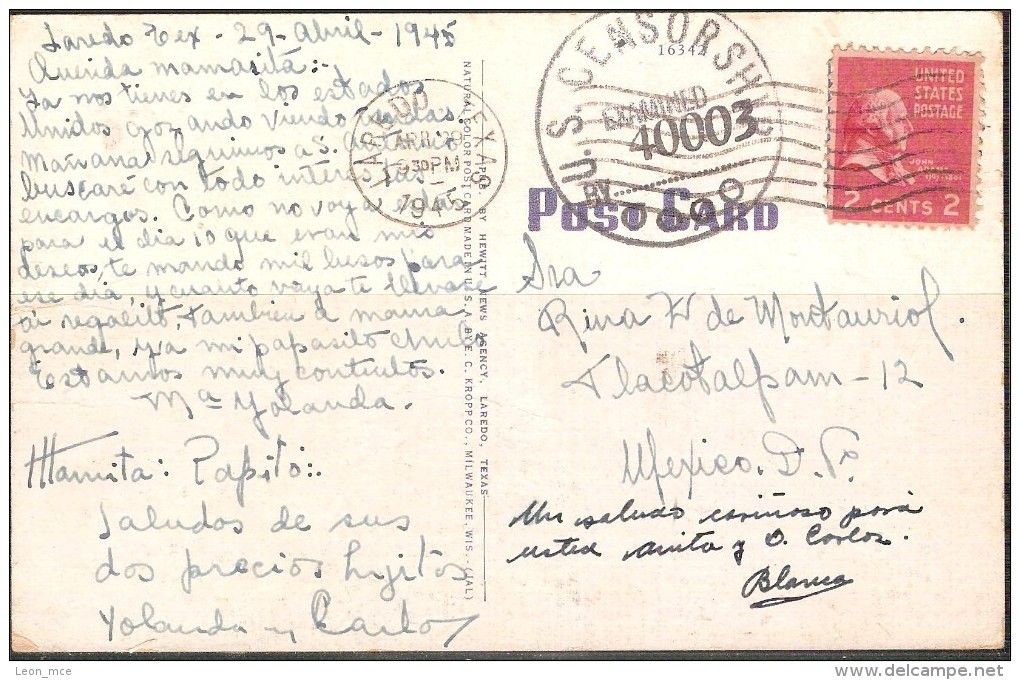 Laredo Tex - 29 - Abril - 1945
Querida mamasita:-
Ya nos tienes en los estados
Unidos gozando viendo tiendas
Mañana seguimos a S. Antonio
buscaré con todo interés tus
encargos. Como no voy a estar
para el dia 10 que eran mis
deseos, te mando mil besos para
ese dia, y cuanto vaya te llevaré
tu regalito, tambien a mama
grande, y a mi papasito chulo
Estamos muy contentos.
Mª Yolanda.
Mamita: Papito:.
Saludos de sus
dos precios hijitos
Yolanda y Carlos
LAREDO TEXAS
APR 29
930 PM
1945
NATURAL COLOR POST CARD MADE IN U.S.A. BY E. C. KROPP CO., MILWAUKEE, WIS.
BY HEWITT NEWS AGENCY, LAREDO, TEXAS
16342
U.S. CENSORSHIP
EXAMINED
40003
BY
POST CARD
UNITED
STATES
POSTAGE
JOHN
ADAMS
2 CENTS 2
Sra
Rina W de Montauriol.
Tlacotalpam - 12
Mexico. D. F.
Un saludo cariñoso para
usted Anita y D. Carlos.
Blanca
Leon_mce
delcampe.net